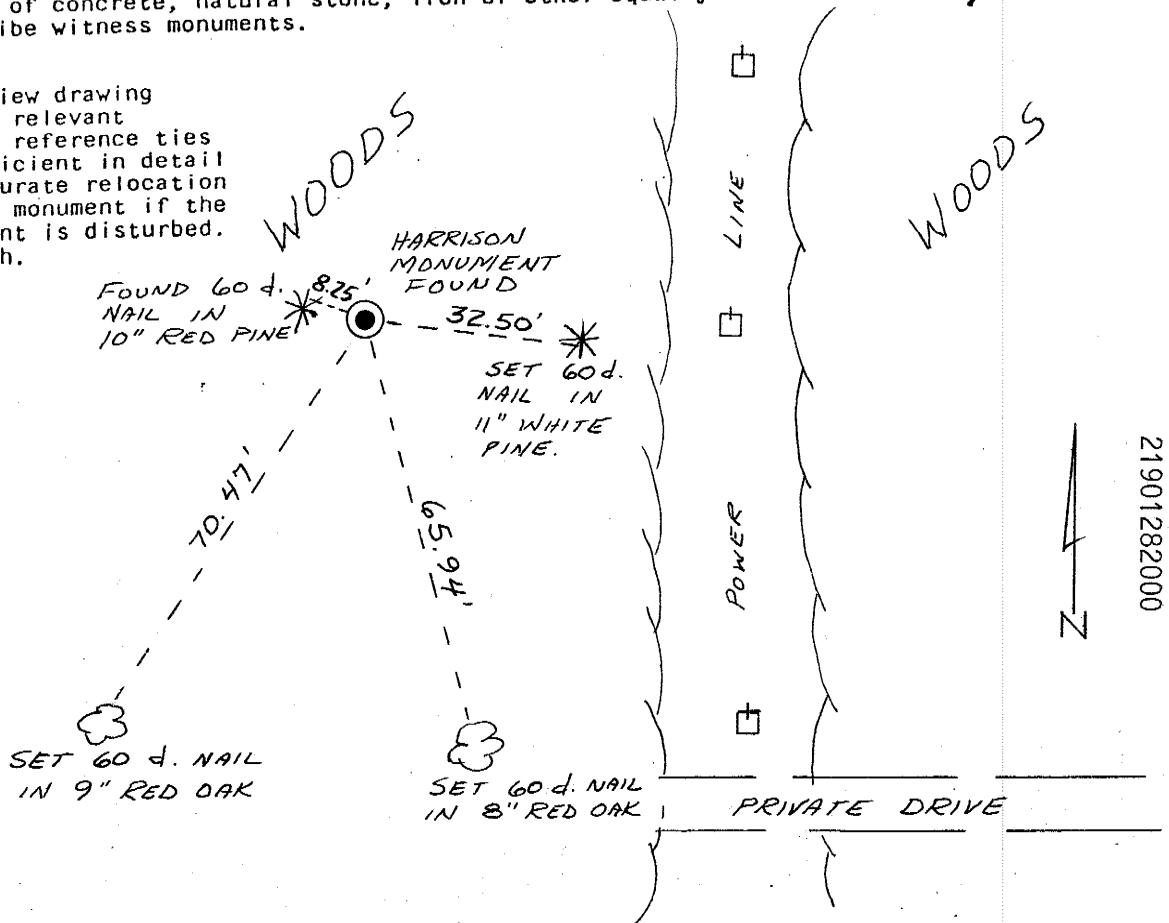 of concrete, natural stone, iron or other equally
ibe witness monuments.
iew drawing
relevant
reference ties
icient in detail
urate relocation
monument if the
nt is disturbed.
h.
WOODS
WOODS
HARRISON
MONUMENT
FOUND
FOUND 60 d.
NAIL IN
10" RED PINE
8.25'
32.50'
SET 60 d.
NAIL IN
11" WHITE
PINE.
POWER LINE
70.47'
65.94'
SET 60 d. NAIL
IN 9" RED OAK
SET 60 d. NAIL
IN 8" RED OAK
PRIVATE DRIVE
N
21901282000